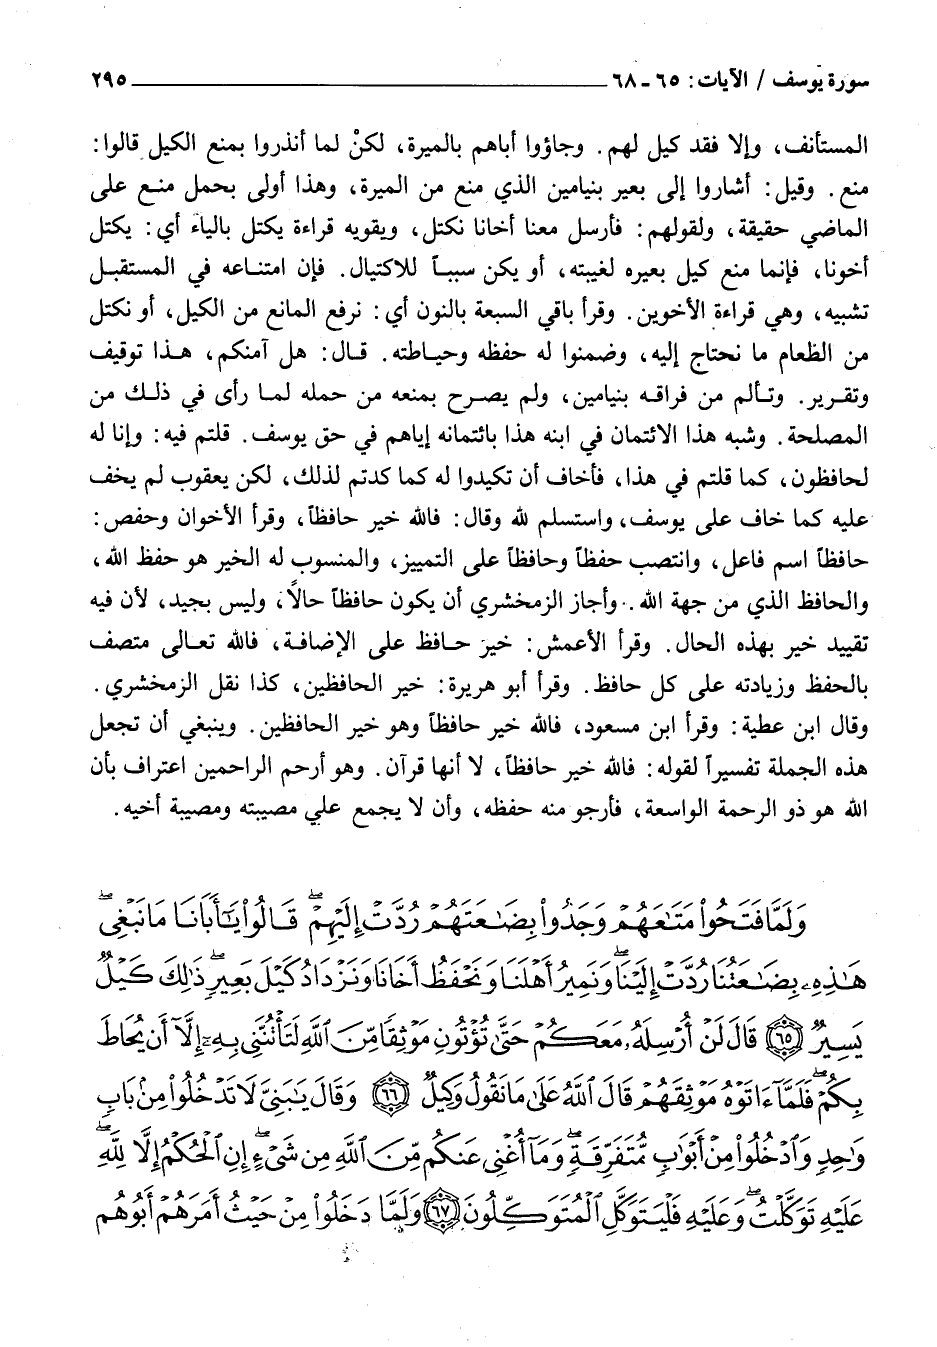 سورة يوسف / الآيات: ٦٥ ـ ٦٨ ٢٩٥
المستأنف، وإلا فقد كيل لهم. وجاؤوا أباهم بالميرة، لكنْ لما أنذروا بمنع الكيل قالوا:
منع. وقيل: أشاروا إلى بعير بنيامين الذي منع من الميرة، وهذا أولى بحمل منع على
الماضي حقيقة، ولقولهم: فأرسل معنا أخانا نكتل، ويقويه قراءة يكتل بالياء أي: يكتل
أخونا، فإنما منع كيل بعيره لغيبته، أو يكن سبباً للاكتيال. فإن امتناعه في المستقبل
تشبيه، وهي قراءة الأخوين. وقرأ باقي السبعة بالنون أي: نرفع المانع من الكيل، أو نكتل
من الطعام ما نحتاج إليه، وضمنوا له حفظه وحياطته. قال: هل آمنكم، هذا توقيف
وتقرير. وتألم من فراقه بنيامين، ولم يصرح بمنعه من حمله لما رأى في ذلك من
المصلحة. وشبه هذا الائتمان في ابنه هذا بائتمانه إياهم في حق يوسف. قلتم فيه: وإنا له
لحافظون، كما قلتم في هذا، فأخاف أن تكيدوا له كما كدتم لذلك، لكن يعقوب لم يخف
عليه كما خاف على يوسف، واستسلم لله وقال: فالله خير حافظاً، وقرأ الأخوان وحفص:
حافظاً اسم فاعل، وانتصب حفظاً وحافظاً على التمييز، والمنسوب له الخير هو حفظ الله،
والحافظ الذي من جهة الله. وأجاز الزمخشري أن يكون حافظاً حالًا، وليس بجيد، لأن فيه
تقييد خير بهذه الحال. وقرأ الأعمش: خير حافظ على الإضافة، فالله تعالى متصف
بالحفظ وزيادته على كل حافظ. وقرأ أبو هريرة: خير الحافظين، كذا نقل الزمخشري.
وقال ابن عطية: وقرأ ابن مسعود، فالله خير حافظاً وهو خير الحافظين. وينبغي أن تجعل
هذه الجملة تفسيراً لقوله: فالله خير حافظاً، لا أنها قرآن. وهو أرحم الراحمين اعتراف بأن
الله هو ذو الرحمة الواسعة، فأرجو منه حفظه، وأن لا يجمع علي مصيبته ومصيبة أخيه.
وَلَمَّا فَتَحُوا۟ مَتَـٰعَهُمْ وَجَدُوا۟ بِضَـٰعَتَهُمْ رُدَّتْ إِلَيْهِمْ ۖ قَالُوا۟ يَـٰٓأَبَانَا مَا نَبْغِى ۖ
هَـٰذِهِۦ بِضَـٰعَتُنَا رُدَّتْ إِلَيْنَا ۖ وَنَمِيرُ أَهْلَنَا وَنَحْفَظُ أَخَانَا وَنَزْدَادُ كَيْلَ بَعِيرٍ ۖ ذَٰلِكَ كَيْلٌ
يَسِيرٌ ﴿٦٥﴾ قَالَ لَنْ أُرْسِلَهُۥ مَعَكُمْ حَتَّىٰ تُؤْتُونِ مَوْثِقًا مِّنَ ٱللَّهِ لَتَأْتُنَّنِى بِهِۦٓ إِلَّآ أَن يُحَاطَ
بِكُمْ ۖ فَلَمَّآ ءَاتَوْهُ مَوْثِقَهُمْ قَالَ ٱللَّهُ عَلَىٰ مَا نَقُولُ وَكِيلٌ ﴿٦٦﴾ وَقَالَ يَـٰبَنِىَّ لَا تَدْخُلُوا۟ مِنۢ بَابٍ
وَٰحِدٍ وَٱدْخُلُوا۟ مِنْ أَبْوَٰبٍ مُّتَفَرِّقَةٍ ۖ وَمَآ أُغْنِى عَنكُم مِّنَ ٱللَّهِ مِن شَىْءٍ ۖ إِنِ ٱلْحُكْمُ إِلَّا لِلَّهِ ۖ
عَلَيْهِ تَوَكَّلْتُ ۖ وَعَلَيْهِ فَلْيَتَوَكَّلِ ٱلْمُتَوَكِّلُونَ ﴿٦٧﴾ وَلَمَّا دَخَلُوا۟ مِنْ حَيْثُ أَمَرَهُمْ أَبُوهُم